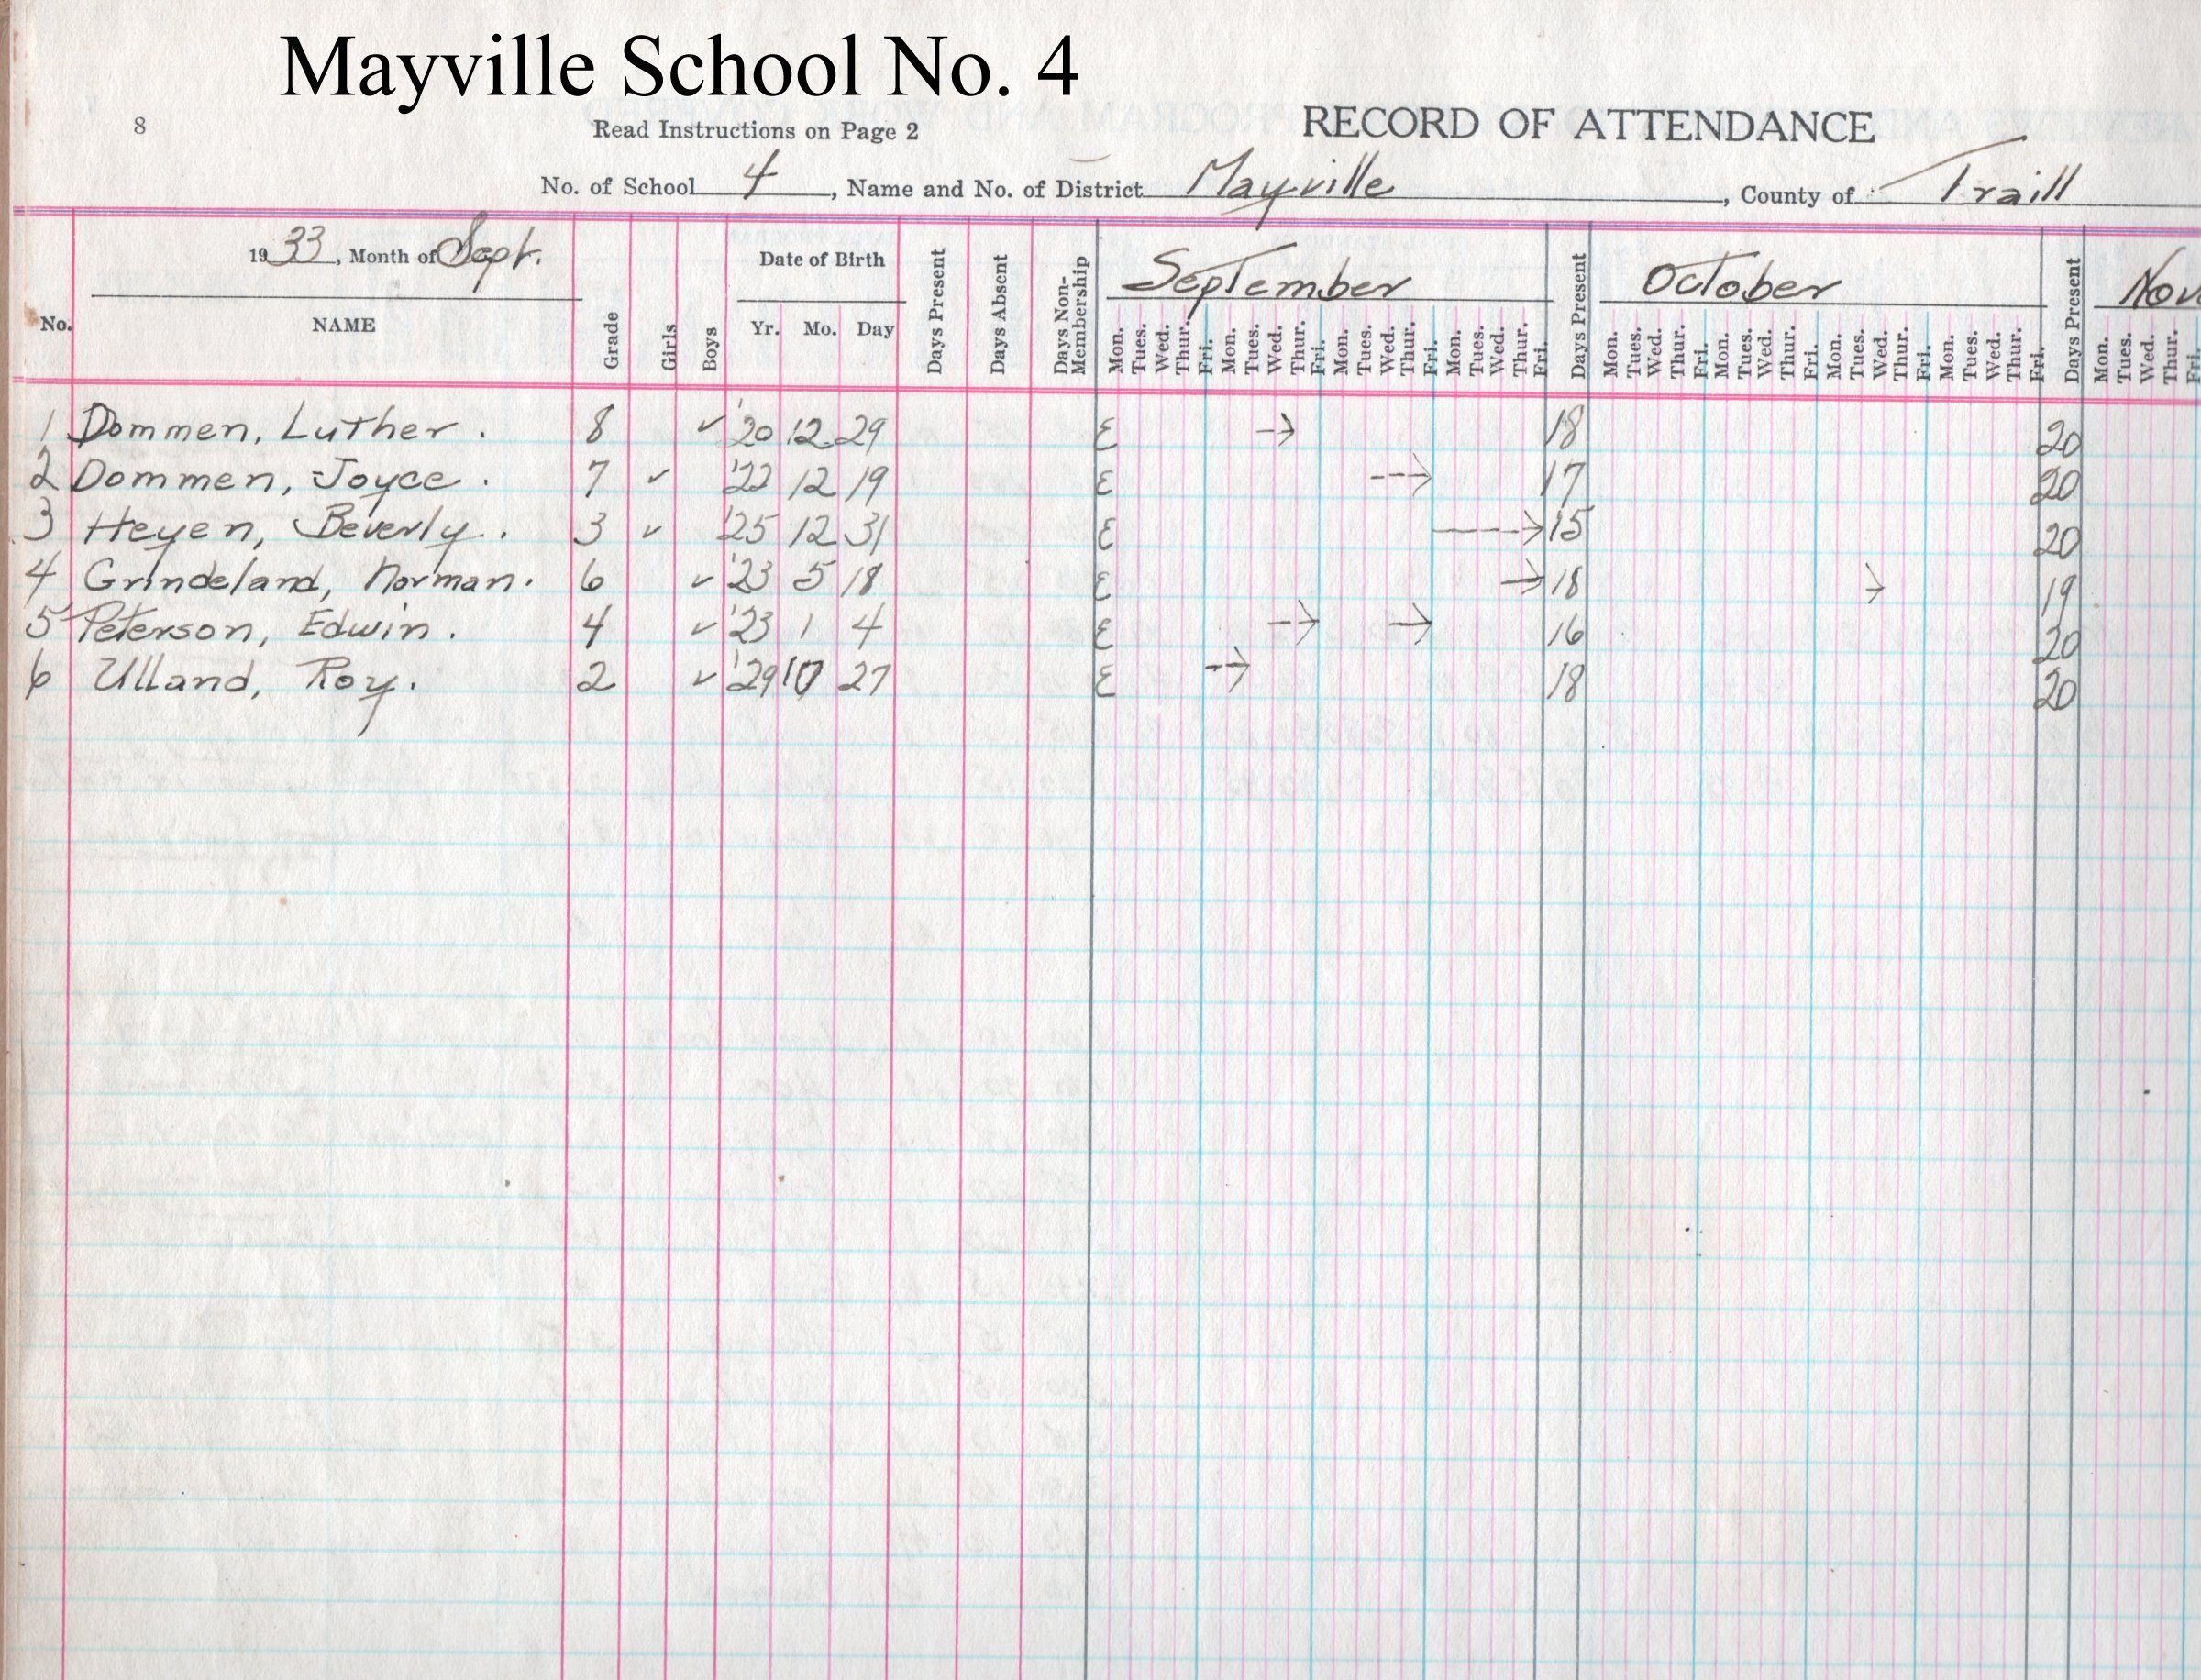 Mayville School No. 4
8 Read Instructions on Page 2 RECORD OF ATTENDANCE
No. of School 4, Name and No. of District Mayville, County of Traill
1933, Month of Sept. Date of Birth September October Nov
No. NAME Grade Girls Boys Yr. Mo. Day Days Present Days Absent Days Non-Membership Mon. Tues. Wed. Thur. Fri. Mon. Tues. Wed. Thur. Fri. Mon. Tues. Wed. Thur. Fri. Mon. Tues. Wed. Thur. Fri. Days Present Mon. Tues. Wed. Thur. Fri. Mon. Tues. Wed. Thur. Fri. Mon. Tues. Wed. Thur. Fri. Mon. Tues. Wed. Thur. Fri. Days Present Mon. Tues. Wed. Thur. Fri.
1 Dommen, Luther. 8 ✓ '20 12 29 E → 18 20
2 Dommen, Joyce. 7 ✓ '22 12 19 E → 17 20
3 Heyen, Beverly. 3 ✓ '25 12 31 E → 15 20
4 Grindeland, Norman. 6 ✓ '23 5 18 E → 18 → 19
5 Peterson, Edwin. 4 ✓ '23 1 4 E → → 16 20
6 Ulland, Roy. 2 ✓ '29 10 27 E → 18 20